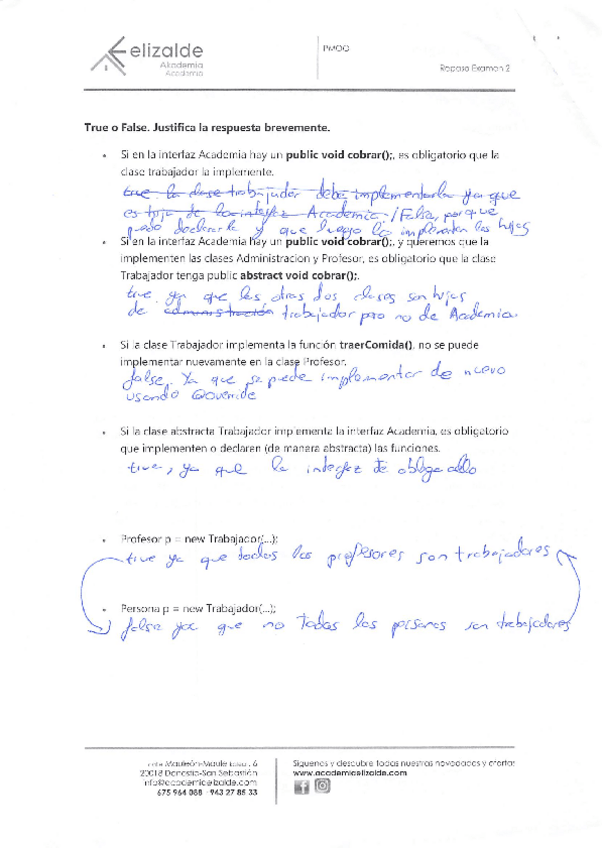 elizalde
Akademia
Academia
PMOO
Repaso Examen 2
True o False. Justifica la respuesta brevemente.
• Si en la interfaz Academia hay un public void cobrar();, es obligatorio que la
clase trabajador la implemente.
true. la clase trabajador debe implementarla ya que
es hija de la interfez Academia./False, porque
puedo declararla y que luego la implementen los hijos
• Si en la interfaz Academia hay un public void cobrar();, y queremos que la
implementen las clases Administracion y Profesor, es obligatorio que la clase
Trabajador tenga public abstract void cobrar();.
true. ya que las otras dos clases son hijas
de administración trabajador pero no de Academia.
• Si la clase Trabajador implementa la función traerComida(), no se puede
implementar nuevamente en la clase Profesor.
false, Ya que se puede implementar de nuevo
usando @override
• Si la clase abstracta Trabajador implementa la interfaz Academia, es obligatorio
que implementen o declaren (de manera abstracta) las funciones.
true, ya que la interfez te obliga a ello
• Profesor p = new Trabajador(...);
true ya que todos los profesores son trabajadores
• Persona p = new Trabajador(...);
false ya que no todas las personas son trabajadores
Mauleón-Maule 6
20018 Donostia-San Sebastián
info@academiaelizalde.com
675 964 088 - 943 27 85 33
Síguenos y descubre todas nuestras novedades y ofertas
www.academiaelizalde.com